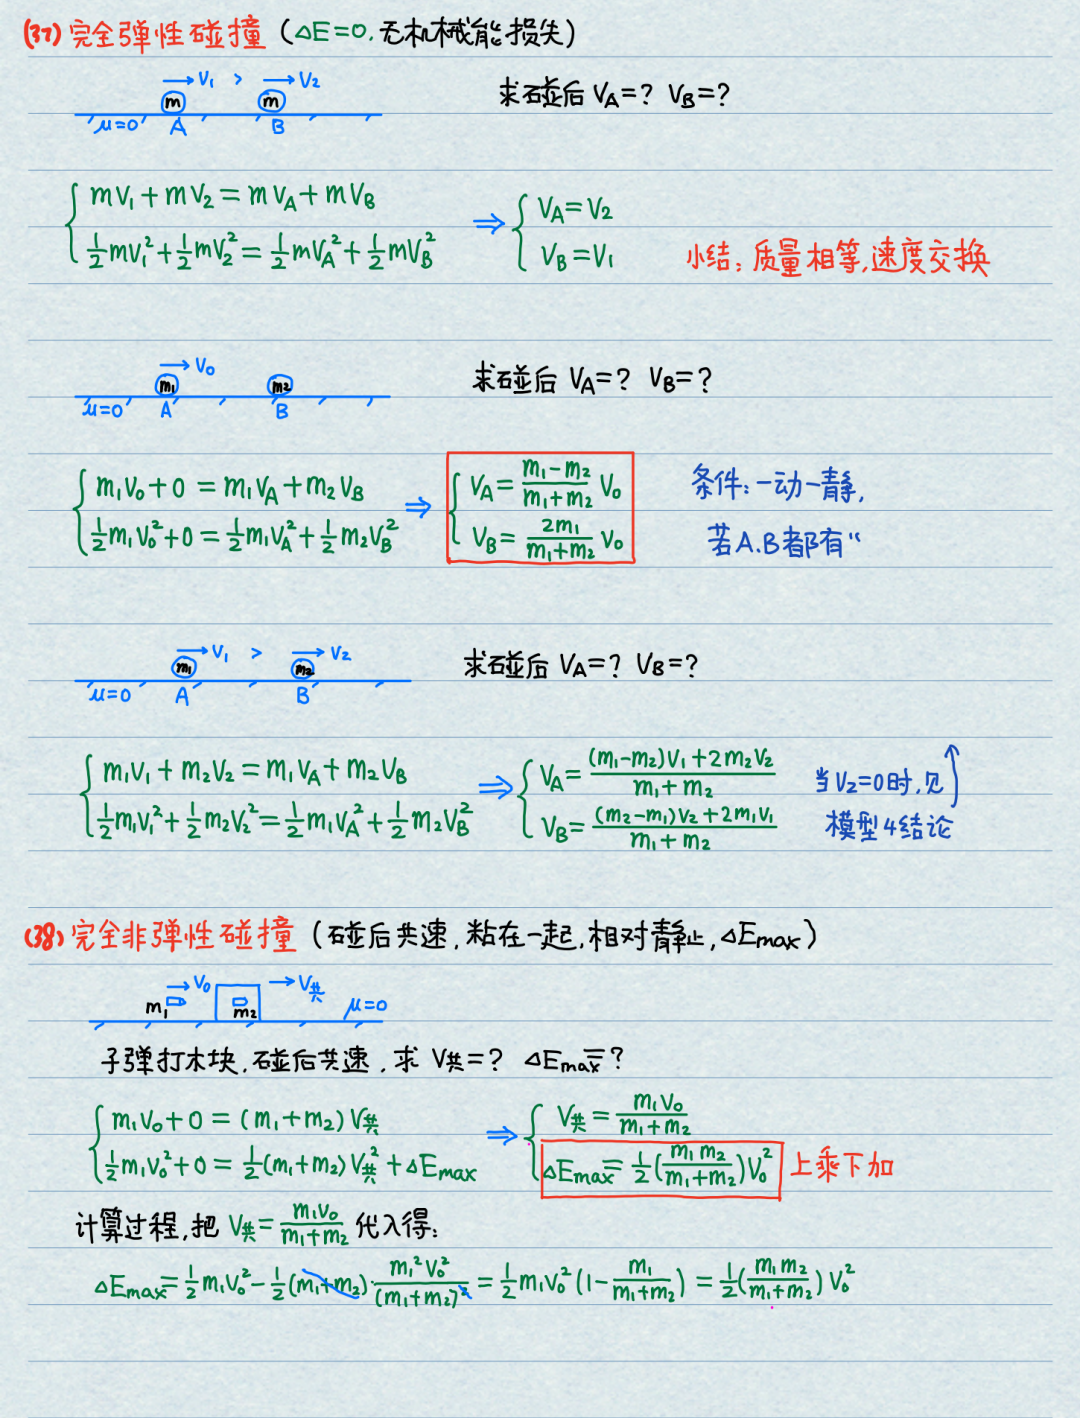 (37) 完全弹性碰撞 (△E=0. 无机械能损失)
→V₁ > →V₂
m m
μ=0 A B
求碰后 V_A=? V_B=?
{ mV₁+mV₂=mV_A+mV_B
½mV₁²+½mV₂²=½mV_A²+½mV_B²
⇒ { V_A=V₂
V_B=V₁
小结: 质量相等,速度交换
→V₀
m₁ m₂
μ=0 A B
求碰后 V_A=? V_B=?
{ m₁V₀+0=m₁V_A+m₂V_B
½m₁V₀²+0=½m₁V_A²+½m₂V_B²
⇒ { V_A=\frac{m₁-m₂}{m₁+m₂}V₀
V_B=\frac{2m₁}{m₁+m₂}V₀
条件:一动一静,
若A.B都有“
→V₁ > →V₂
m₁ m₂
μ=0 A B
求碰后 V_A=? V_B=?
{ m₁V₁+m₂V₂=m₁V_A+m₂V_B
½m₁V₁²+½m₂V₂²=½m₁V_A²+½m₂V_B²
⇒ { V_A=\frac{(m₁-m₂)V₁+2m₂V₂}{m₁+m₂}
V_B=\frac{(m₂-m₁)V₂+2m₁V₁}{m₁+m₂}
当V₂=0时,见
模型4结论
(38) 完全非弹性碰撞 (碰后共速,粘在一起,相对静止,△Emax)
→V₀ →V共
m₁ m₂ μ=0
子弹打木块,碰后共速,求 V共=? △Emax=?
{ m₁V₀+0=(m₁+m₂)V共
½m₁V₀²+0=½(m₁+m₂)V共²+△Emax
⇒ { V共=\frac{m₁V₀}{m₁+m₂}
△Emax=½(\frac{m₁m₂}{m₁+m₂})V₀² 上乘下加
计算过程,把 V共=\frac{m₁V₀}{m₁+m₂} 代入得:
△Emax=½m₁V₀²-½(m₁+m₂)·\frac{m₁²V₀²}{(m₁+m₂)²}=½m₁V₀²(1-\frac{m₁}{m₁+m₂})=½(\frac{m₁m₂}{m₁+m₂})V₀²